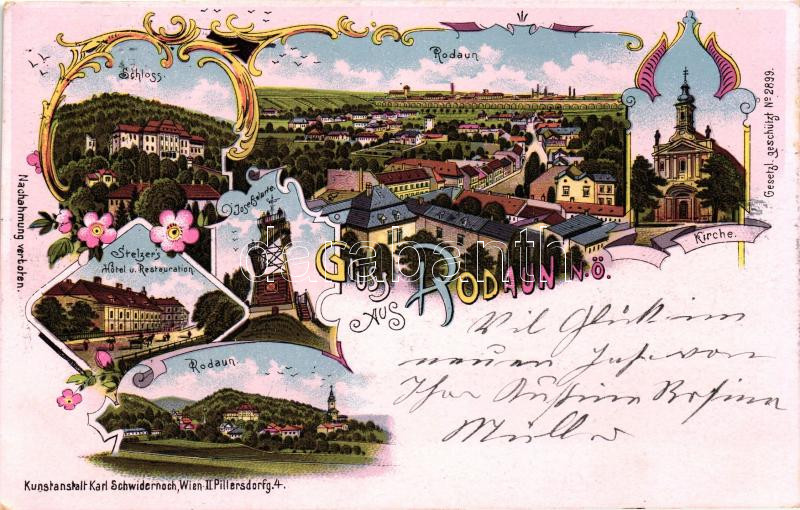 Schloss.
Rodaun
Gesetzl. geschützt No 2899.
Josefswarte.
Kirche.
Stelzers
Hôtel u. Restauration
Gruss
aus
Rodaun N.Ö.
Nachahmung verboten.
Rodaun.
Vil Glück im
neuen Jahr von
Ihr
Rosina
Müller
Kunstanstalt Karl Schwidernoch, Wien II Pillersdorfg. 4.
darabanth.com